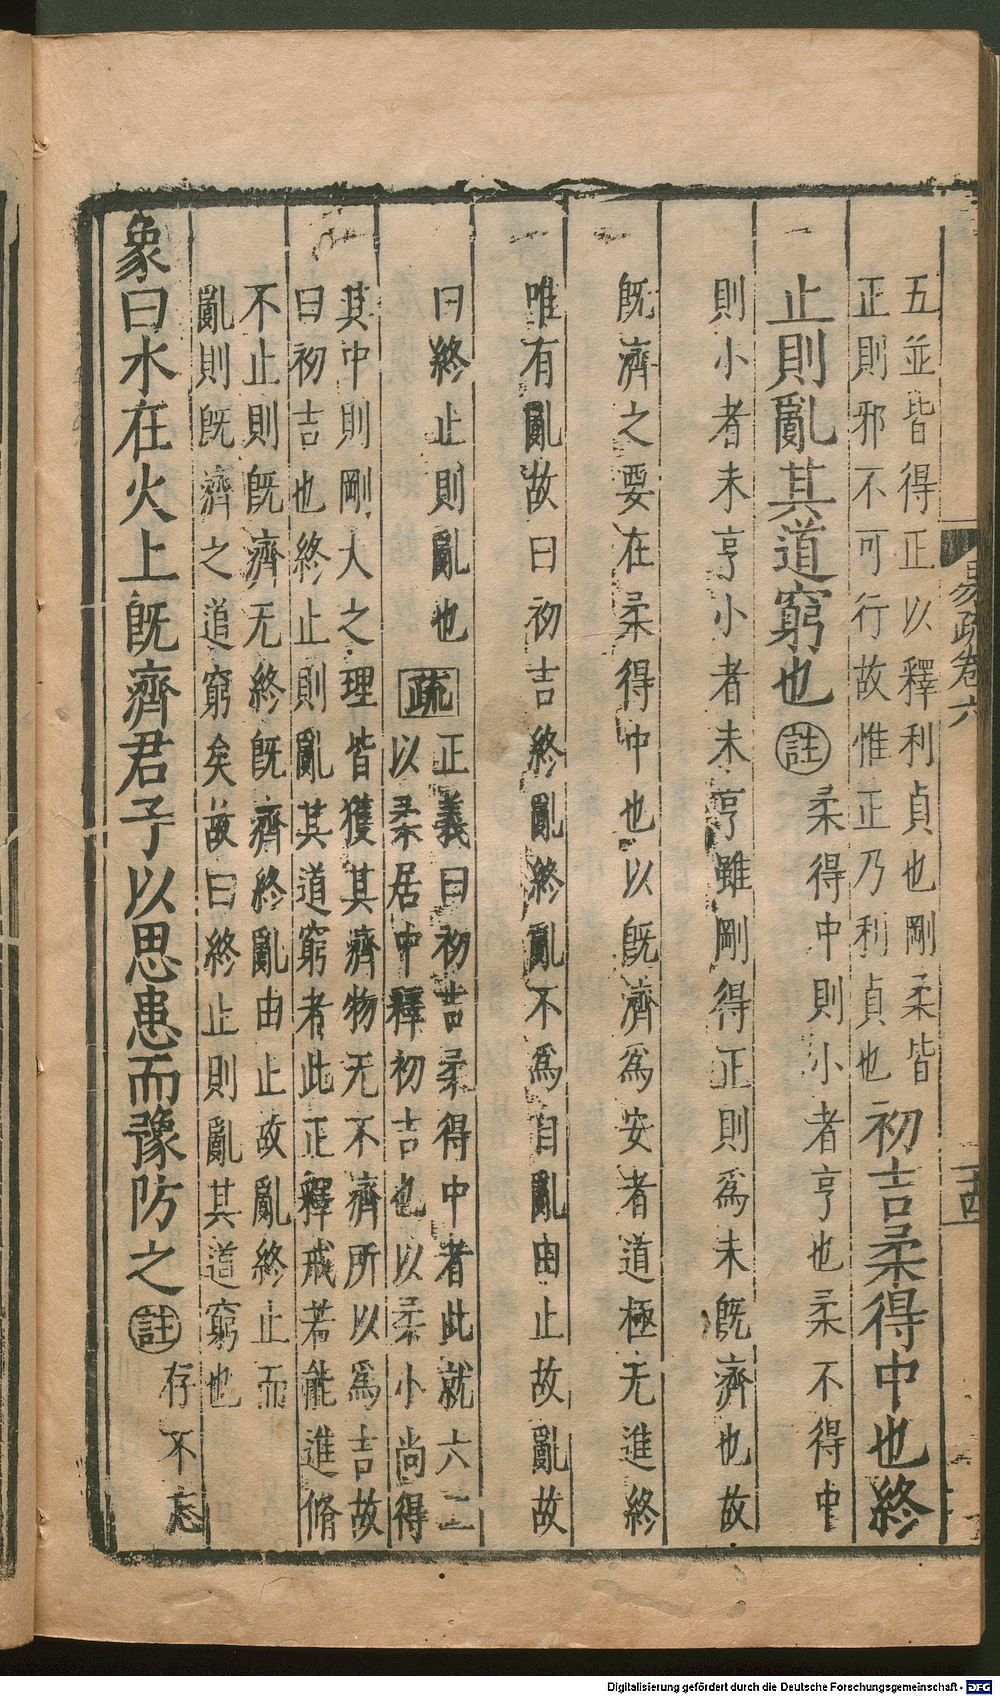 五並皆得正以釋利貞也剛柔皆
正則邪不可行故惟正乃利貞也
初吉柔得中也終
止則亂其道窮也註柔得中則小者亨也柔不得中
則小者未亨小者未亨雖剛得正則爲未旣濟也故
旣濟之要在柔得中也以旣濟爲安者道極无進終
唯有亂故曰初吉終亂終亂不爲自亂由止故亂故
曰終止則亂也疏
正義曰初吉柔得中者此就六二
以柔居中釋初吉也以柔小尚得
其中則剛大之理皆獲其濟物无不濟所以爲吉故
曰初吉也終止則亂其道窮者此正釋戒若能進脩
不止則旣濟无終旣濟終亂由止故亂終止而
亂則旣濟之道窮矣故曰終止則亂其道窮也
象曰水在火上旣濟君子以思患而豫防之註存不忘
易疏卷六
十四
Digitalisierung gefördert durch die Deutsche Forschungsgemeinschaft - DFG